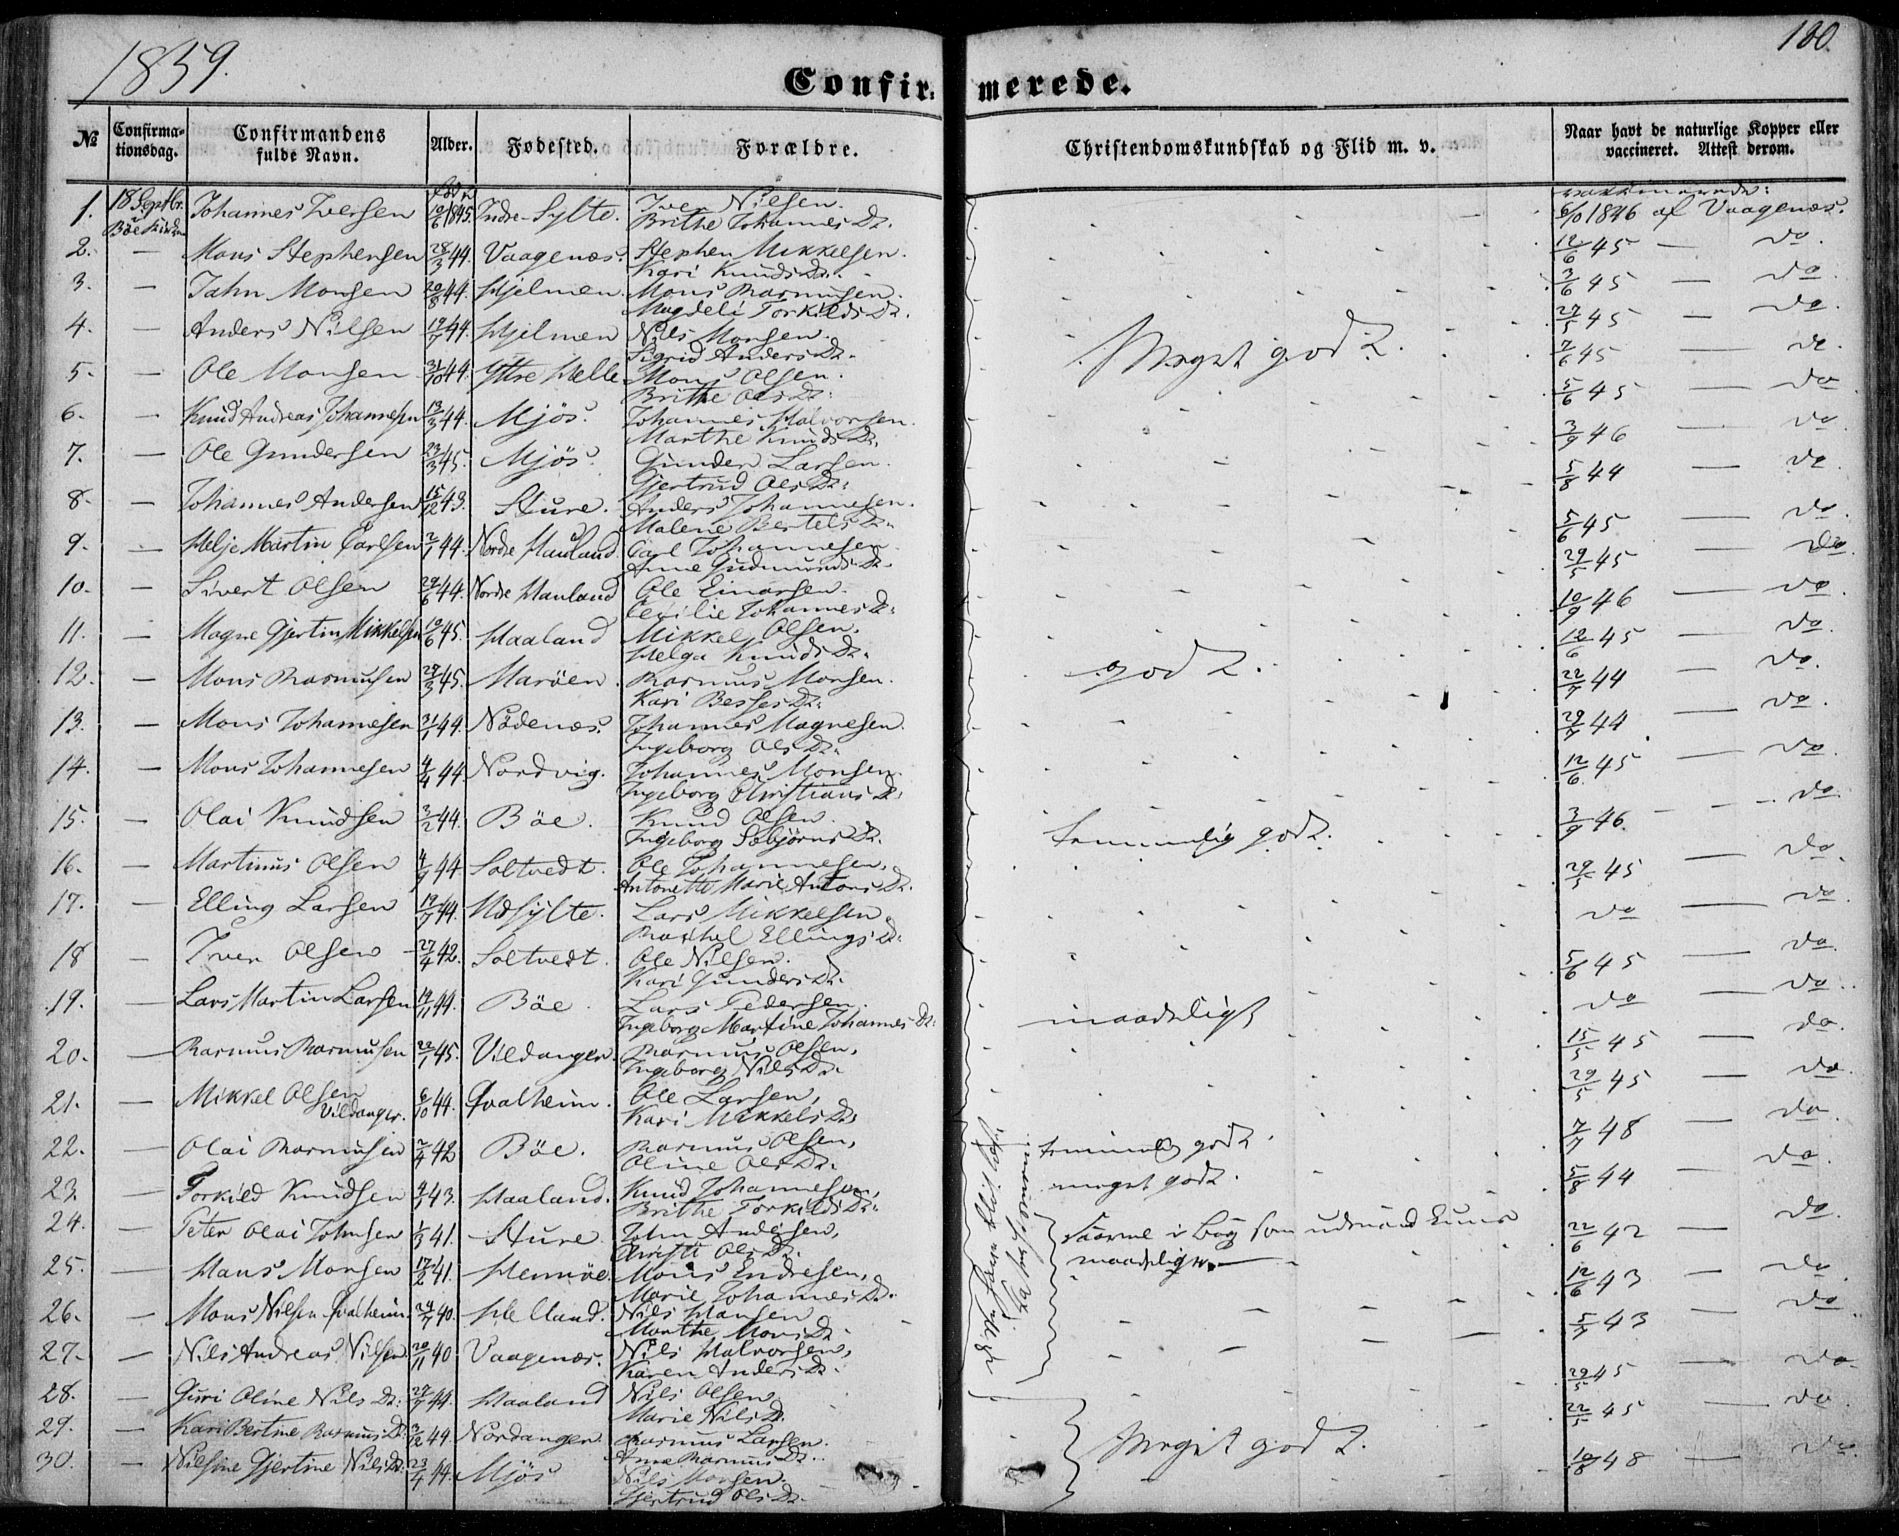 1859.
180.
Confirmerede.
№ Confirmationsdag. Confirmandens fulde Navn. Alder. Fødested. Forældre. Christendomskundskab og Flid m. v. Naar havt de naturlige Kopper eller vaccineret. Attest derom.
1. 18 Septbr. Bøe Kirke Johannes Iversen 10/6 1845. Indre-Sylte. Iver Nielsen. Brithe Johannes Dr. 6/10 1846 af Vaagenæs.
2. — Mons Stephensen 28/3 44. Vaagenæs. Stephen Mikkelsen. Kari Knuds Dr. 12/6 45 — do.
3. — Jahn Monsen 20/8 44. Hjelmen. Mons Rasmusen. Magdeli Torkilds Dr. 3/6 45 — do.
4. — Anders Nilsen 19/7 44. Hjelmen Nils Monsen. Sigrid Anders Dr. Meget godt. 27/5 45 — do.
5. — Ole Monsen 31/10 44. Yttre Helle Mons Olsen. Brithe Ols Dr. 7/6 45 — do.
6. — Knud Andreas Johannesen 13/3 44. Mjös. Johannes Halvorsen. Marthe Knuds Dr. 5/6 45 — do
7. — Ole Gundersen 23/3 45. Mjös. Gunder Larsen. Gjertrud Ols Dr. 3/9 46 — do.
8. — Johannes Andersen 15/12 43. Sture. Anders Johannesen. Malene Bertels Dr. 5/8 44 — do.
9. — Helje Martin Carlsen 2/1 44. Nordre Hauland. Carl Johannesen. Anne Gudmunds Dr. 5/6 45 — do.
10. — Sivert Olsen 29/6 44. Nordre Hauland Ole Einarsen. Cecilie Johannes Dr. 29/5 45 — do.
11. — Magne Gjertin Mikkelsen 10/6 45. Haaland Mikkel Olsen. Helga Knuds Dr. 10/9 46 — do.
12. — Mons Rasmusen 29/3 45. Marøen. Rasmus Monsen. Kari Besses Dr. godt. 12/6 45 — do.
13. — Mons Johannesen 21/1 44. Nødenæs. Johannes Magnesen. Ingeborg Ols Dr. 22/7 44 — do.
14. — Mons Johannesen 4/4 44 Nordvig. Johannes Monsen. Ingeborg Christians Dr. 29/7 44 — do.
15. — Olai Knudsen 3/2 44. Bøe. Knud Olsen. Ingeborg Sebjørns Dr. temmelig godt. 12/6 45 — do.
16. — Martinus Olsen 4/7 44 Soltvedt. Ole Johannesen, Antonette Marie Antons Dr. 3/9 46. — do.
17. — Elling Larsen 19/7 44. Udsylte. Lars Mikkelsen Rachel Ellings Dr. 29/5 45 — do.
18 — Iver Olsen 27/4 42. Soltvedt. Ole Nilsen. Kari Gunders Dr. do — do
19. — Lars Martin Larsen 19/11 44. Bøe. Lars Pedersen. Ingeborg Martine Johannes Dr. maadeligt 5/6 45 — do.
20. — Rasmus Rasmusen 22/1 45. Vildanger Rasmus Olsen, Ingeborg Nils Dr. do — do.
21. — Mikkel Olsen Vildanger. 6/10 44. Qvalheim. Ole Larsen, Kari Mikkels Dr. 15/5 45 — do.
22. — Olai Rasmusen 2/4 42 Bøe. Rasmus Olsen, Oline Ols Dr. temmelig godt. 29/5 45 — do.
23. — Torkild Knudsen 4/1 43. Haaland. Knud Johannesen, Brithe Torkilds Dr. meget godt. 7/7 48 — do
24. — Peter Olai Johnsen 1/3 41. Sture John Andersen, Christi Ols Dr. Saavel i Bog som udenad kuns maadeligen. 5/8 44 — do.
25. — Hans Monsen 17/2 41. Hennøe. Mons Endresen, Marie Johannes Dr. 22/6 42 — do.
26. — Mons Nilsen Qvalheim. 24/7 40. Helland. Nils Hansen Marthe Mons Dr. 12/6 43 — do.
27. — Nils Andreas Nilsen 20/11 40 Vaagenæs. Nils Halvorsen, Karen Anders Dr. 5/7 43 — do
28. — Guri Oline Nils Dr. 27/7 44. Haaland Nils Olsen Marie Nils Dr. 29/5 45 — do.
29. — Kari Bertine Rasmus Dr. 3/12 44. Nordanger. Rasmus Larsen. Anna Rasmus Dr. Meget godt. 22/5 45 — do.
30. — Nilsine Gjertine Nils Dr. 23/4 44. Mjös Nils Monsen. Gjertrud Ols Dr. 10/8 48 — do